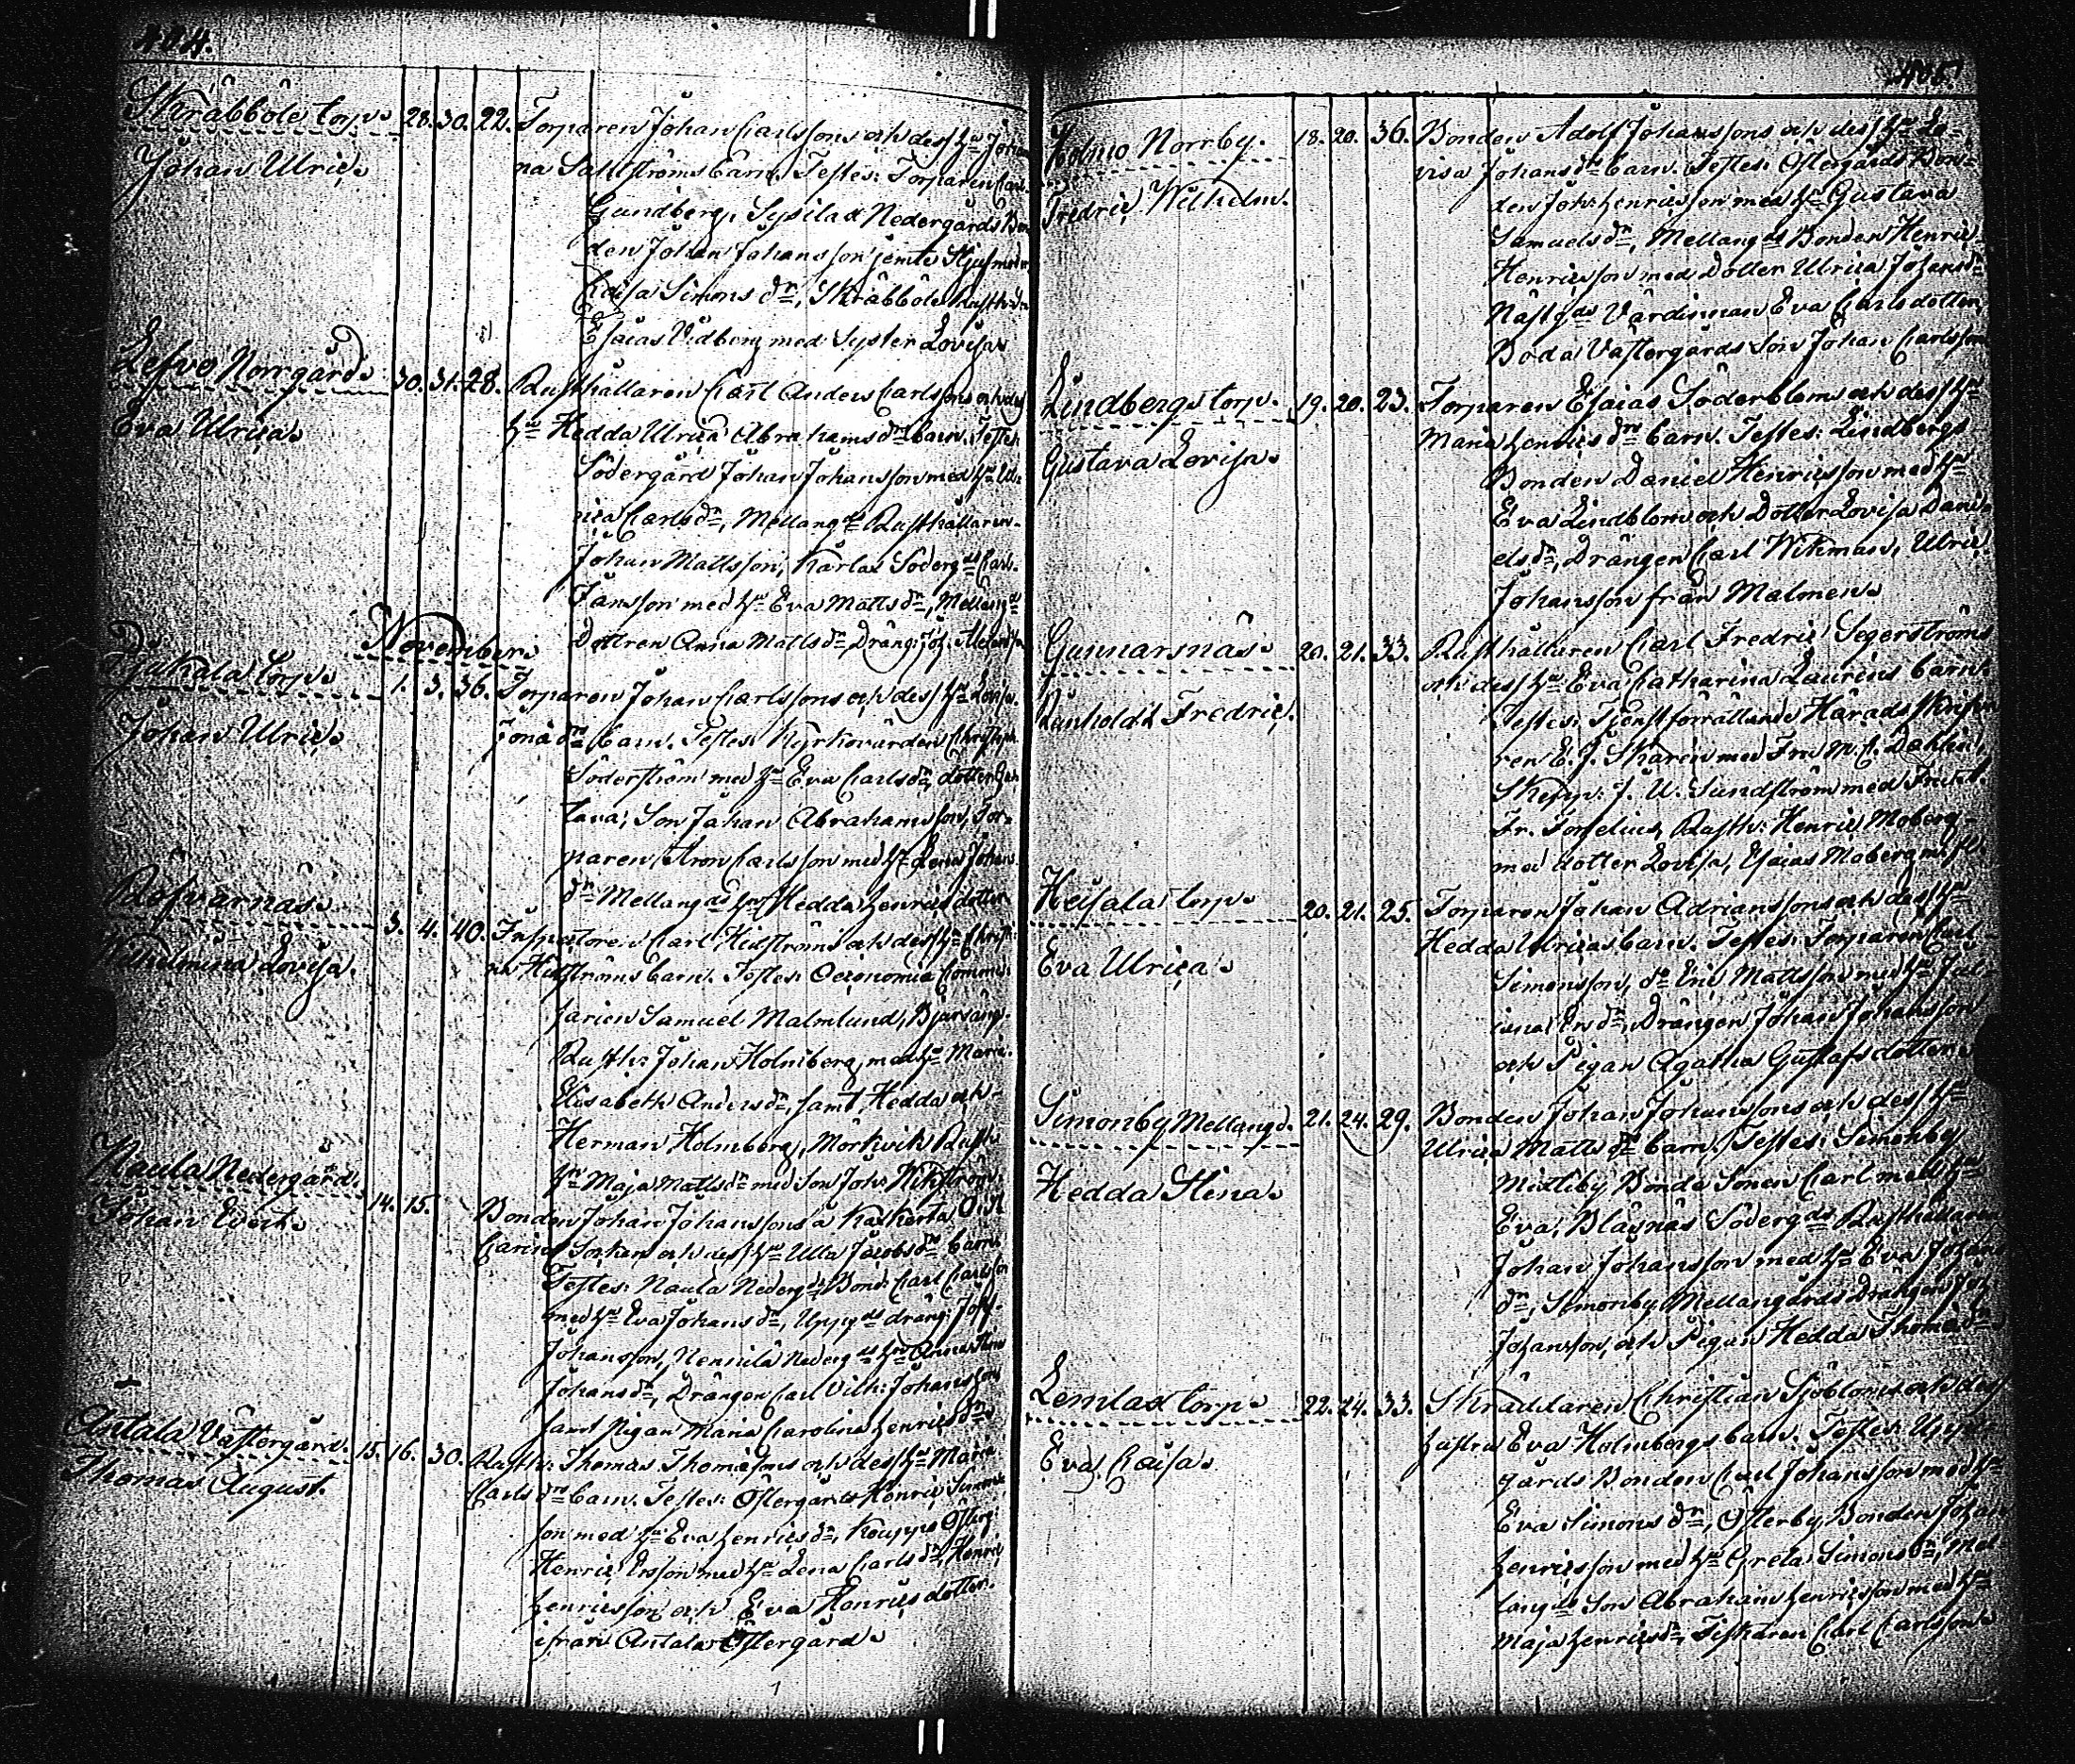 404.
Skräbböle torp. 28. 30. 22. Torparen Johan Carlssons och dess hu Johan
Johan Ulric. na Sahlströms barn. Testes: Torparen Carl
Gundberg, Sysilax Nedergårds Bon
den Johan Johansson jemte Styfmoder
Caisa Simons dr, Skräbböle Rusth:
Esaias Vidberg med Syster Lovisa.
Lefvo Norrgård. 30. 31. 28. Rusthållaren Carl Anders Carlssons och dess
Eva Ulrica. hu Hedda Ulrica Abrahams drs barn. Testes:
Södergård Johan Johansson med hu Ul-
rica Carls dr, Mellangds Rusthållaren
Johan Mattsson, Karlax Södergds Carl
Jansson med hu Eva Matts dr, Mellangds
Dottren Anna Matts dr, Dräng: Joh.
November.
torp. 1. 3. 36. Torparen Johan Carlssons och dess hu Lovisa
Johan Ulric. Jona drs barn. Testes: Kyrkovärden Christian
Söderström med hu Eva Carls dr, dotter Gus
tava, Son Johan Abrahamsson, Tor-
paren Aron Carlsson med hu Lena Johans
dr Mellangds hu Hedda Henricsdotter.
Rofvarnäs. 3. 4. 40. Inspectoren Carl Hidströms och dess hu Christi
Wilhelmina Lovisa. na Hidströms barn. Testes: Oeconomie Commis
sarien Samuel Malmlund, Bjärsäng
Rusth: Johan Holmberg med hu Maria
Elisabeth Anders dr, samt Hedda och
Herman Holmberg, Mörkvik Rusth
hu Maja Matts dr med Son Joh: Wikström.
Naula Nedergård. 14. 15. Bonden Johan Johanssons å Kaskerta, O:st
Johan Evert. Carins Sochen och dess hu Ulla Jacobs drs barn.
Testes: Naula Nedergds Bond: Carl Carlsson
med hu Eva Johans dr, Uppgds dräng: Joh:
Johansson, Nedergds hu Anna Stina
Johans dr, Drängen Carl Vilh: Johansson
samt Pigan Maria Carolina Henrics dr.
Antala Västergård. 15. 16. 30. Rusth: Thomas Thomæssons och dess hu Maria
Thomas August. Carls drs barn. Testes: Östergårds Henric Simons
son med hu Eva Henrics dr, Österg:
Henric Ersson med hu Lena Carls dr, Henric
Henricsson och Eva Henricsdotter
ifrån Antala Östergård.
405.
Holmo Norrby. 18. 20. 36. Bonden Adolf Johanssons och dess hu Lo-
Fredric Wilhelm. visa Johans drs barn. Testes: Östergårds Bon-
den Joh: Henricsson med hu Gustava
Samuels dr, Mellangds Bonden Henric
Henricsson med Dotter Ulrica Johans dr
Nästgds Värdinnan Eva Carlsdotter,
Boda Västergårds Son Johan Carlsson
Lindbergs torp. 19. 20. 23. Torparen Esaias Söderbloms och dess hu
Gustava Lovisa. Maria Henrics drs barn. Testes: Lindbergs
Bonden Daniel Henricsson med hu
Eva Lindblom och Dotter Lovisa Dani-
els dr, Drängen Carl Wikman, Ulric
Johansson från Malmen.
Gunnarsnäs. 20. 21. 33. Rusthållaren Carl Fredric Segerströms
Reinholdt Fredric. och dess hu Eva Catharina Laurins barn.
Testes: Tjenstförrättande Härads skrifva
ren E. J. Skarin med Fru M. C. Dahlin,
Skepp: J. U. Sundström med Fru
Fr. Torselius, Rusth: Henric Moberg
med dotter Lovisa, Esaias Moberg m. fl.
Heisala torp. 20. 21. 25. Torparen Johan Adrianssons och dess hu
Eva Ulrica. Hedda Ulricas barn. Testes: Torparen Carl
Simonsson, do Eric Mattsson med hu Jul-
iana Ers dr, Drängen Johan Johansson
och Pigan Agatha Gustafsdotter.
Simonby Mellangd. 21. 24. 29. Bonden Johan Johanssons och dess hu
Hedda Stina. Ulrica Matts drs barn. Testes: Simonby
Bonde Sonen Carl med hu
Eva, Bläsnäs Södergds Rusthållaren
Johan Johansson med hu Eva Johans
dr, Simonby Mellangårds Drängen Joh
Johansson, och Pigan Hedda Thomæ dr.
Lemlax torp. 22. 24. 33. Skräddaren Christian Sjöbloms och dess
Eva Caisa. hustru Eva Holmbergs barn. Testes: Upp
gårds Bonden Carl Johansson med hu
Eva Simons dr, Österby Bonden Johan
Henricsson med hu Greta Simons dr, Mel
langds Son Abraham Henricsson med hu
Maja Henrics dr, Fiskaren Carl Carlsson.